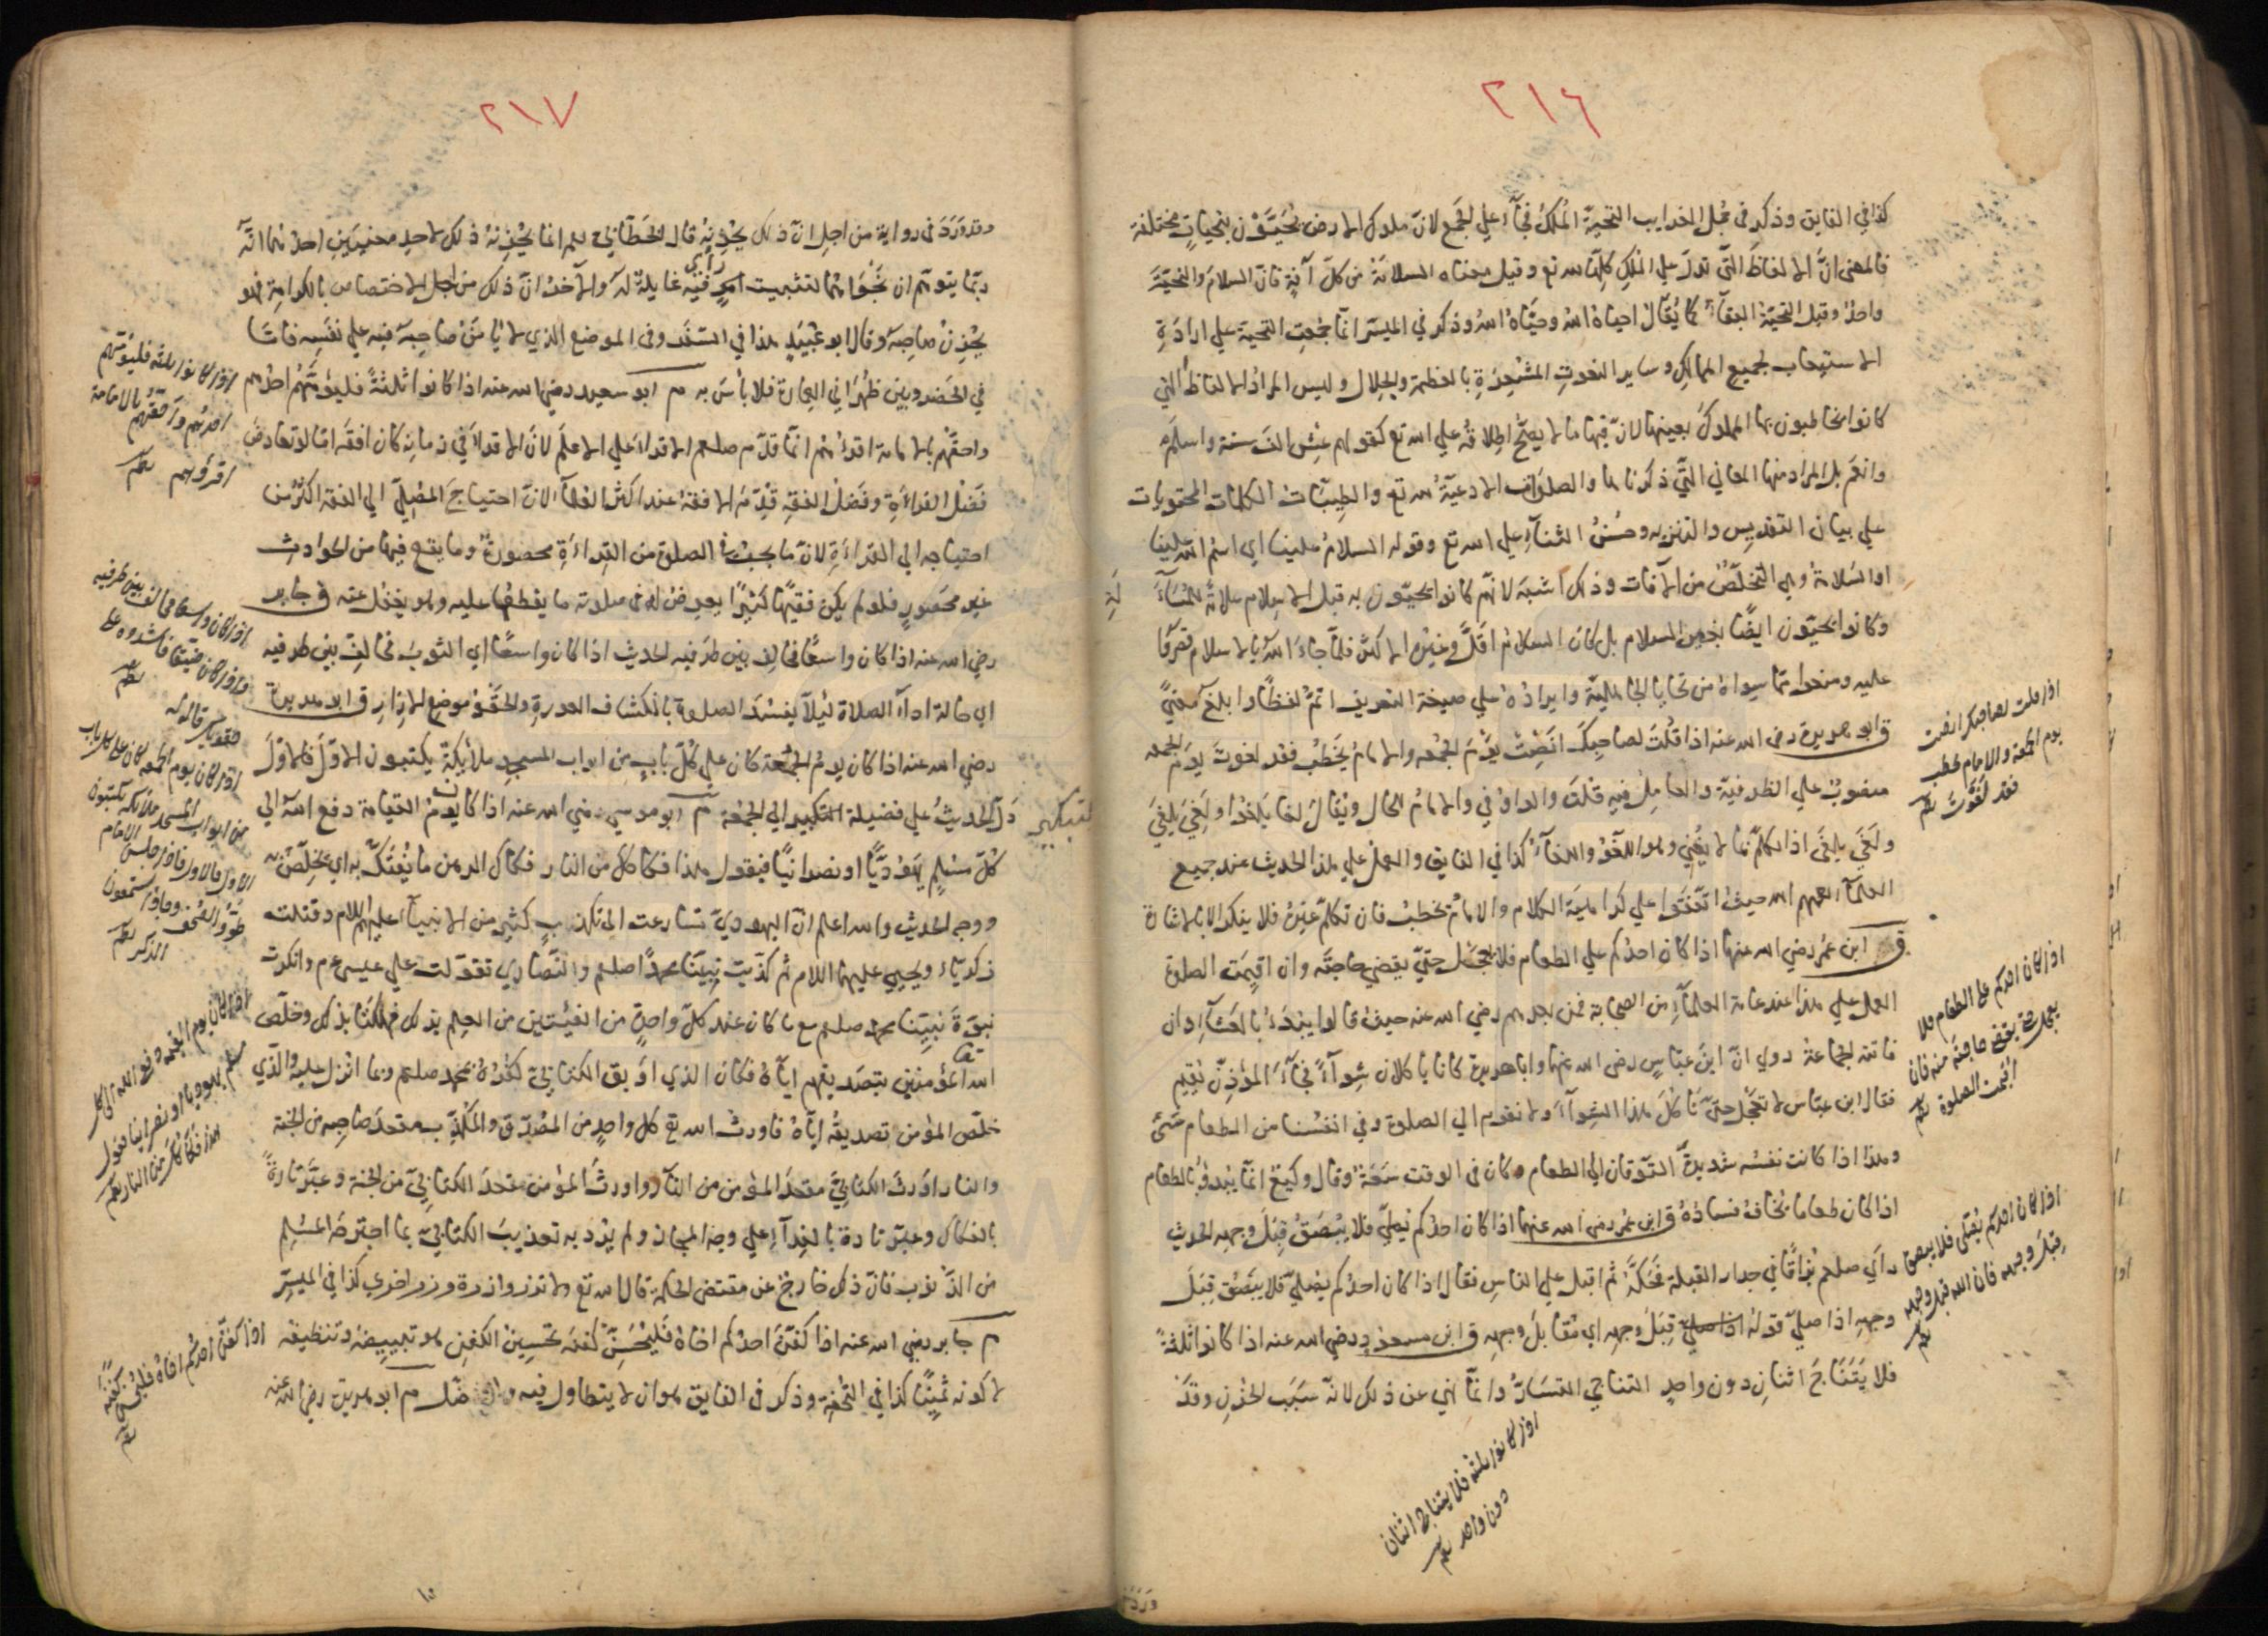 ٢١٦
كذا في الفايق وذكر في مجمل الغرايب التحية الملك فجاء علي الجمع لان ملوك الارض يحيون بتحيات مختلفة
فالمعنى ان الالفاظ التي تدل علي الملك كلها لله تع وقيل معناه السلامة من كل آفة فان السلام والتحية
واحد وقيل التحية البقاء كما يقال احياه الله وحياه الله وذكر في الميسر انما جمعت التحية علي ارادة
الاستيعاب لجميع الممالك وساير النعوت المشعرة بالعظمة والجلال وليس المراد الالفاظ التي
كانوا يخاطبون بها الملوك بعينها لان فيها ما لا يصح اطلاقه علي الله تع كقولهم عش الف سنة واسلم
وانعم بل المراد منها المعاني التي ذكرناها والصلوات الادعية لله تع والطيبات الكلمات المحتويات
علي بيان التقديس والتنزيه وحسن الثناء علي الله تع وقوله السلام علينا اي اسم الله علينا
او السلامة وهي التخلص من الآفات وذلك اشبه لانهم كانوا يحيون به قبل الاسلام علامة للمسالمة
وكانوا يحيون ايضا بغير السلام بل كان السلام اقل وغيره الاكثر فلما جاء الله بالاسلام قصروا
عليه ومنعوا مما سواه من تحايا الجاهلية وايراده علي صيغة التعريف اتم لفظا وابلغ معنى
ق ابو هريرة رضي الله عنه اذا قلت لصاحبك انصت يوم الجمعة والامام يخطب فقد لغوت يوم الجمعة
منصوب علي الظرفية والعامل فيه قلت والواو في والامام الحال ويقال لغا يلغو ولغي يلغي
ولغي يلغي اذا تكلم بما لا يغني وهو اللغو واللغاء كذا في الفايق والعمل علي هذا الحديث عند جميع
العلماء رحمهم الله حيث اتفقوا علي كراهية الكلام والامام يخطب فان تكلم غيره فلا ينكر الا بالاشارة
ق ابن عمر رضي الله عنهما اذا كان احدكم علي الطعام فلا يعجل حتي يقضي حاجته وان اقيمت الصلوة
العمل علي هذا عند عامة العلماء من الصحابة فمن بعدهم رضي الله عنه حيث قالوا يبدء بالعشاء وان
فاتته الجماعة روي ان ابن عباس رضي الله عنهما وابا هريرة كانا ياكلان شواء فجاء المؤذن ليقيم
فقال ابن عباس لا تعجل حتي ناكل هذا الشواء ولا نقوم الي الصلوة وفي انفسنا من الطعام شئ
وهذا اذا كانت نفسه شديدة التوقان الي الطعام وكان في الوقت سعة وقال وكيع انما يبدؤ بالطعام
اذا كان طعاما يخاف فساده ق ابن عمر رضي الله عنهما اذا كان احدكم يصلي فلا يبصق قبل وجهه الحديث
راي صلعم بزاقا في جدار القبلة فحكه ثم اقبل علي الناس فقال اذا كان احدكم يصلي فلا يبصق قبل
وجهه اذا صلي قوله قبل وجهه اي مقابل وجهه ق ابن مسعود رضي الله عنه اذا كانوا ثلثة
فلا يتناج اثنان دون واحد التناجي التسار وانما نهي عن ذلك لانه سبب لحزنه وقد
اذا قلت لصاحبك انصت
يوم الجمعة والامام يخطب
فقد لغوت
اذا كان احدكم على الطعام فلا
يعجل حتى يقضي حاجته منه فان
اقيمت الصلوة
اذا كان احدكم يصلي فلا يبصق
قبل وجهه فان الله قبل وجهه
اذا كانوا ثلثة فلا يتناجى اثنان
دون واحد
٢١٧
وقد ورد في رواية من اجل ان ذلك يحزنه قال الخطابي رحمه انما يحزنه ذلك لاحد معنيين احدهما انه
ربما يتوهم ان نجواهما لتثبيت راي فيه غايلة له والآخر ان ذلك من اجل الاختصاص بالكرامة فهو
يحزن صاحبه وقال ابو عبيد هذا في السفر وفي الموضع الذي لا يامن صاحبه فيه علي نفسه فاما
في الحضر وبين ظهراني العمارة فلا بأس به م ابو سعيد رضي الله عنه اذا كانوا ثلثة فليؤمهم احدهم
واحقهم بالامامة اقرؤهم انما قدم صلعم الاقراء علي الاعلم لان الاقراء في زمانه كان افقه اما لو تعارض
فضل القراءة وفضل الفقه قدم الافقه عند اكثر العلماء لان احتياج المصلي الي الفقه اكثر من
احتياجه الي القراءة لان ما يجب في الصلوة من القراءة محصورة وما يقع فيها من الحوادث
غير محصور فلو لم يكن فقيها كثيرا يعرض له في صلوته ما يقطعها عليه وهو يغفل عنه ق جابر
رضي الله عنه اذا كان واسعا فخالف بين طرفيه الحديث اذا كان واسعا اي الثوب فخالف بين طرفيه
اي حالة اداء الصلاة ليلا يفسد الصلوة بانكشاف العورة والحقو موضع الازار ق ابو هريرة
رضي الله عنه اذا كان يوم الجمعة كان علي كل باب من ابواب المسجد ملائكة يكتبون الاول فالاول
دل الحديث علي فضيلة التبكير الي الجمعة م ابو موسي رضي الله عنه اذا كان يوم القيامة دفع الله الي
كل مسلم يهوديا او نصرانيا فيقول هذا فكاكك من النار فكاك الرهن ما يفتك به اي يخلص به
ووجه الحديث والله اعلم ان اليهودي تسارعت الي تكذيب كثير من الانبياء عليهم السلام وقتلت
زكرياء ويحيي عليهما السلام ثم كذبت نبينا محمدا صلعم والنصاري تقولت علي عيسي عم وانكرت
نبوة نبينا محمد صلعم مع ما كان عند كل واحد من الفئتين من العلم بذلك فهلكتا بذلك وخلص
الله المؤمنين بتصديقهم اياه فكان الذي اوبق الكتابي كفره بمحمد صلعم وبما انزل عليه والذي
خلص المؤمن تصديقه اياه فاورث الله تع كل واحد من المصدق والمكذب مقعد صاحبه من الجنة
والنار اورث الكتابي مقعد المؤمن من النار واورث المؤمن مقعد الكتابي من الجنة وعبر تارة
بالفكاك وعبر تارة بالفداء علي وجه المجاز ولم يرد به تعذيب الكتابي بما اجترحه المسلم
من الذنوب فان ذلك خارج عن مقتضى الحكمة قال الله تع ولا تزر وازرة وزر اخرى كذا في الميسر
م جابر رضي الله عنه اذا كفن احدكم اخاه فليحسن كفنه تحسين الكفن هو تبييضه وتنظيفه
لا كونه ثمينا كذا في التحفة وذكر في الفايق هو ان لا يتطاول فيه م ابو هريرة رضي الله عنه
اذا كانوا ثلثة فليؤمهم
احدهم واحقهم بالامامة
اقرؤهم
اذا كان واسعا فخالف بين طرفيه
واذا كان ضيقا فاشدده على
حقويك قاله له
اذا كان يوم الجمعة كان على كل باب
من ابواب المسجد ملائكة يكتبون
الاول فالاول فاذا جلس الامام
طووا الصحف وجاؤا يستمعون
الذكر
اذا كان يوم القيمة دفع الله الى كل
مسلم يهوديا او نصرانيا فيقول
هذا فكاكك من النار
اذا كفن احدكم اخاه فليحسن
كفنه